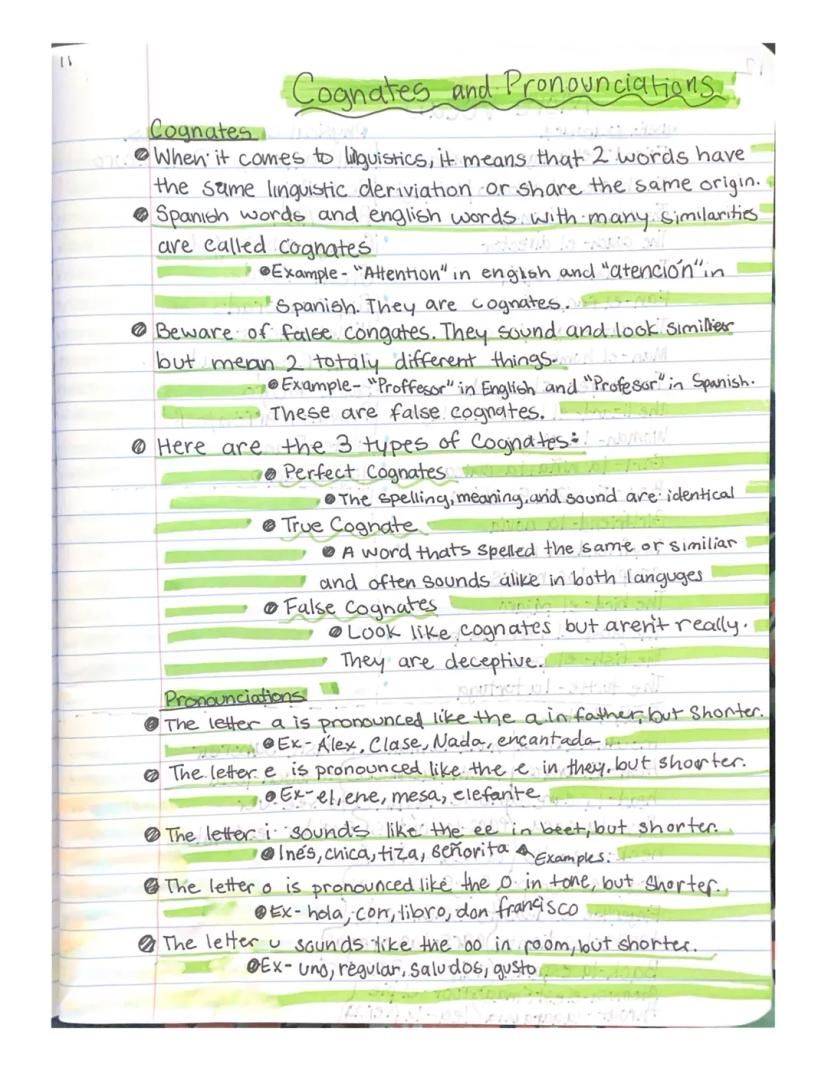 11
Cognates and Pronounciations
Cognates
When it comes to linguistics, it means that 2 words have
the same linguistic deriviation or share the same origin.
Spanish words and english words with many similarities
are called cognates
Example - "Attention" in english and "atención" in
Spanish. They are cognates.
Beware of false congates. They sound and look similier
but mean 2 totaly different things.
Example - "Proffesor" in English and "Profesor" in Spanish.
These are false cognates.
Here are the 3 types of Cognates:
Perfect Cognates
The spelling, meaning, and sound are identical
True Cognate
A word thats spelled the same or similiar
and often sounds alike in both languges
False Cognates
Look like cognates but aren't really.
They are deceptive.
Pronounciations
The letter a is pronounced like the a in father, but Shorter.
Ex - Álex, Clase, Nada, encantada
The letter e is pronounced like the e in they, but shorter.
Ex - el, ene, mesa, elefante
The letter i sounds like the ee in beet, but shorter.
Inés, chica, tiza, señorita Examples:
The letter o is pronounced like the o in tone, but Shorter.
Ex - hola, con, libro, don francisco
The letter u sounds like the oo in room, but shorter.
Ex - uno, règular, saludos, gusto